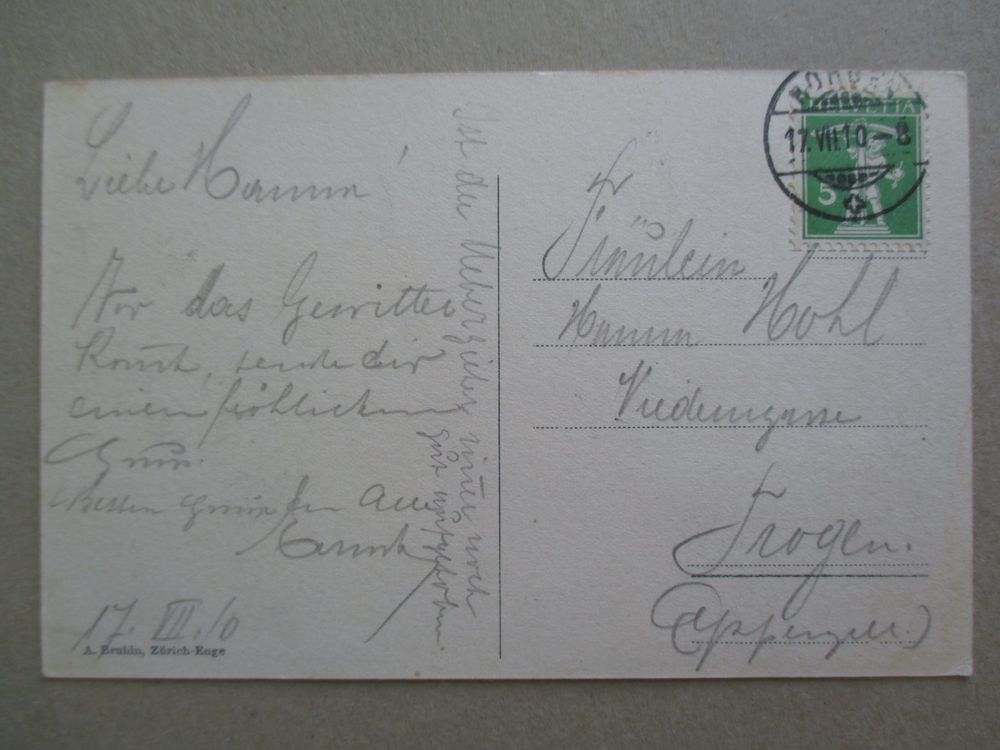 Liebe Hanna!
Vor das Gewitter
kommt, sende dir
einen fröhlichen
Gruss.
Besten Gruss
17. VII. 10
A. Bruhin, Zürich-Enge
Ist der Ueberzieher immer noch
gut
HELVETIA
17.VII.10-8
5
Fräulein
Hanna Hohl
Niederngasse
Trogen.
(Appenzell.)